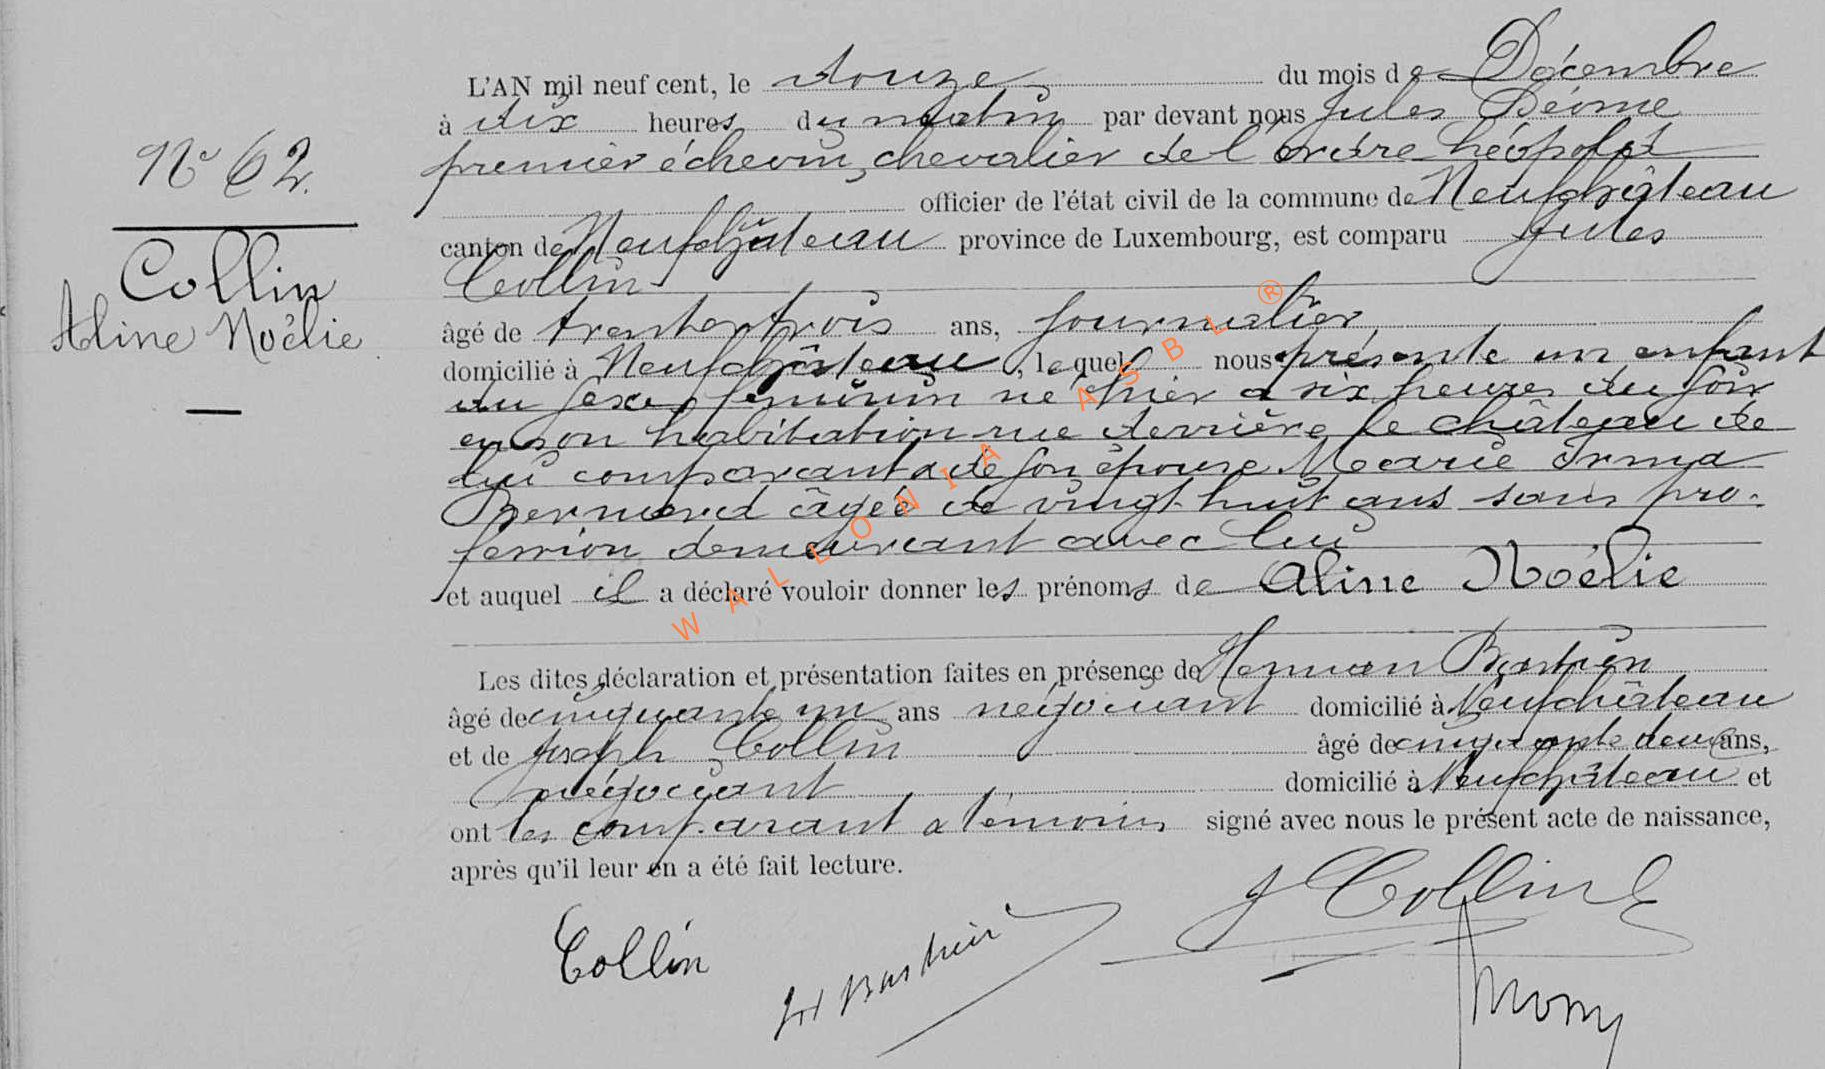 N° 62.
Collin
Aline Noélie
L'AN mil neuf cent, le douze du mois de Décembre
à dix heures du matin par devant nous Jules
premier échevin, chevalier de l'ordre Léopold
officier de l'état civil de la commune de Neufchâteau
canton de Neufchâteau province de Luxembourg, est comparu Jules
Collin
âgé de trente trois ans, journalier,
domicilié à Neufchâteau, lequel nous présente un enfant
du sexe féminin né hier a six heures du soir
en son habitation rue derrière le château de
lui comparant & de son épouse Marie Irma
âgée de vingt-huit ans sans pro-
fession demeurant avec lui
et auquel il a déclaré vouloir donner les prénoms de Aline Noélie
Les dites déclaration et présentation faites en présence de Herman Bastien
âgé de cinquante un ans négociant domicilié à Neufchâteau
et de Joseph Collin âgé de cinquante deux ans,
négociant domicilié à Neufchâteau et
ont les comparant & témoins signé avec nous le présent acte de naissance,
après qu'il leur en a été fait lecture.
J Collin
Collin
Bastien
WALLONIA ASBL ®